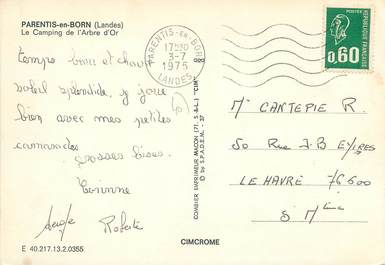 PARENTIS-en-BORN (Landes)
Le Camping de l'Arbre d'Or
PARENTIS-EN-BORN
17H30
3-7
1975
LANDES
POSTES
0,60
REPUBLIQUE FRANÇAISE
Temps beau et chaud
soleil splendide, y joue
bien avec mes petites
camarades
grosses bises.
Corinne
Serge Roberte
COMBIER IMPRIMEUR MACON (71. S.&L.) "CIM"
© by S.P.A.D.E.M. - 37
Mr CANTEPIE R.
50 Rue J-B EYRIES
LE HAVRE 76600
S Mme
E 40.217.13.2.0355
CIMCROME